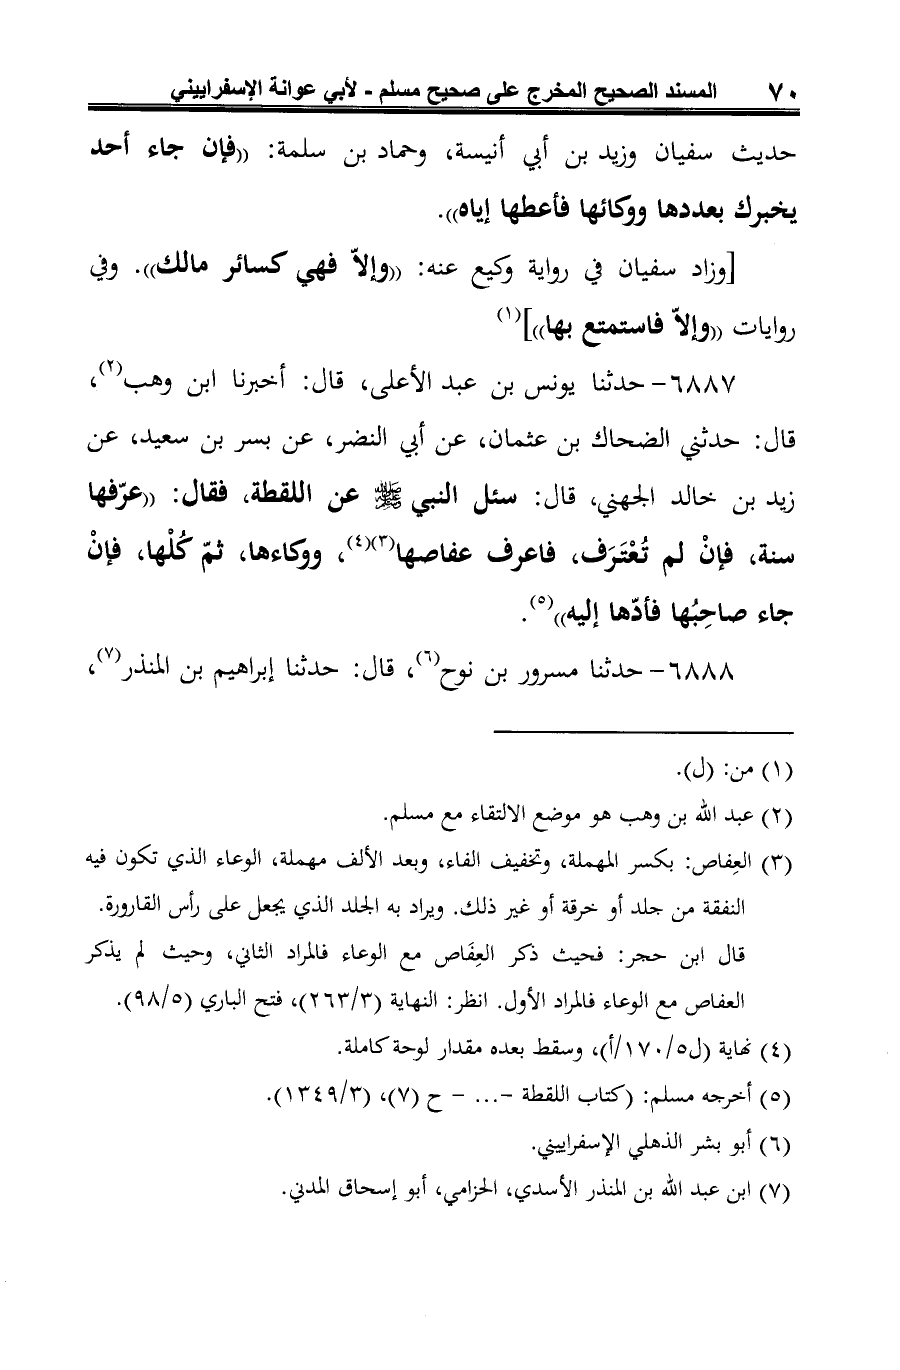 ٧٠ المسند الصحيح المخرج على صحيح مسلم - لأبي عوانة الإسفراييني
حديث سفيان وزيد بن أبي أنيسة، وحماد بن سلمة: ((فإن جاء أحد
يخبرك بعددها ووكائها فأعطها إياه)).
[وزاد سفيان في رواية وكيع عنه: ((وإلاّ فهي كسائر مالك)). وفي
روايات ((وإلاّ فاستمتع بها))](١)
٦٨٨٧- حدثنا يونس بن عبد الأعلى، قال: أخبرنا ابن وهب(٢)،
قال: حدثني الضحاك بن عثمان، عن أبي النضر، عن بسر بن سعيد، عن
زيد بن خالد الجهني، قال: سئل النبي ﷺ عن اللقطة، فقال: ((عرّفها
سنة، فإنْ لم تُعْتَرَف، فاعرف عفاصها(٣)(٤)، ووكاءها، ثمّ كُلْها، فإنْ
جاء صاحِبُها فأدّها إليه))(٥).
٦٨٨٨- حدثنا مسرور بن نوح(٦)، قال: حدثنا إبراهيم بن المنذر(٧)،
(١) من: (ل).
(٢) عبد الله بن وهب هو موضع الالتقاء مع مسلم.
(٣) العِفاص: بكسر المهملة، وتخفيف الفاء، وبعد الألف مهملة، الوعاء الذي تكون فيه
النفقة من جلد أو خرقة أو غير ذلك. ويراد به الجلد الذي يجعل على رأس القارورة.
قال ابن حجر: فحيث ذكر العِفَاص مع الوعاء فالمراد الثاني، وحيث لم يذكر
العفاص مع الوعاء فالمراد الأول. انظر: النهاية (٢٦٣/٣)، فتح الباري (٩٨/٥).
(٤) نهاية (ل١٧٠/٥/أ)، وسقط بعده مقدار لوحة كاملة.
(٥) أخرجه مسلم: (كتاب اللقطة -... - ح (٧)، (١٣٤٩/٣).
(٦) أبو بشر الذهلي الإسفراييني.
(٧) ابن عبد الله بن المنذر الأسدي، الحزامي، أبو إسحاق المدني.